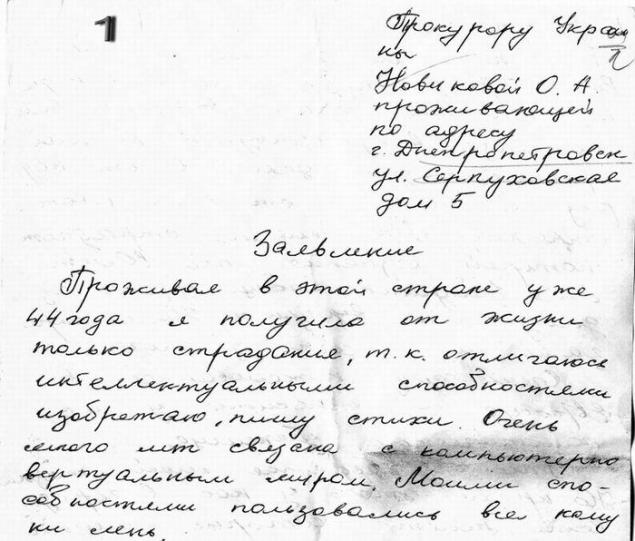 1
Прокурору Украи
ны
Новиковой О. А.
проживающей
по адресу
г. Днепропетровск
ул. Серпуховская
дом 5
Заявление
Проживая в этой стране уже
44 года я получила от жизни
только страдание, т. к. отличаюсь
интеллектуальными способностями
изобретаю, пишу стихи. Очень
много лет связана с компьютерно
вертуальным миром. Моими спо-
собностями пользовались все кому
ни лень.